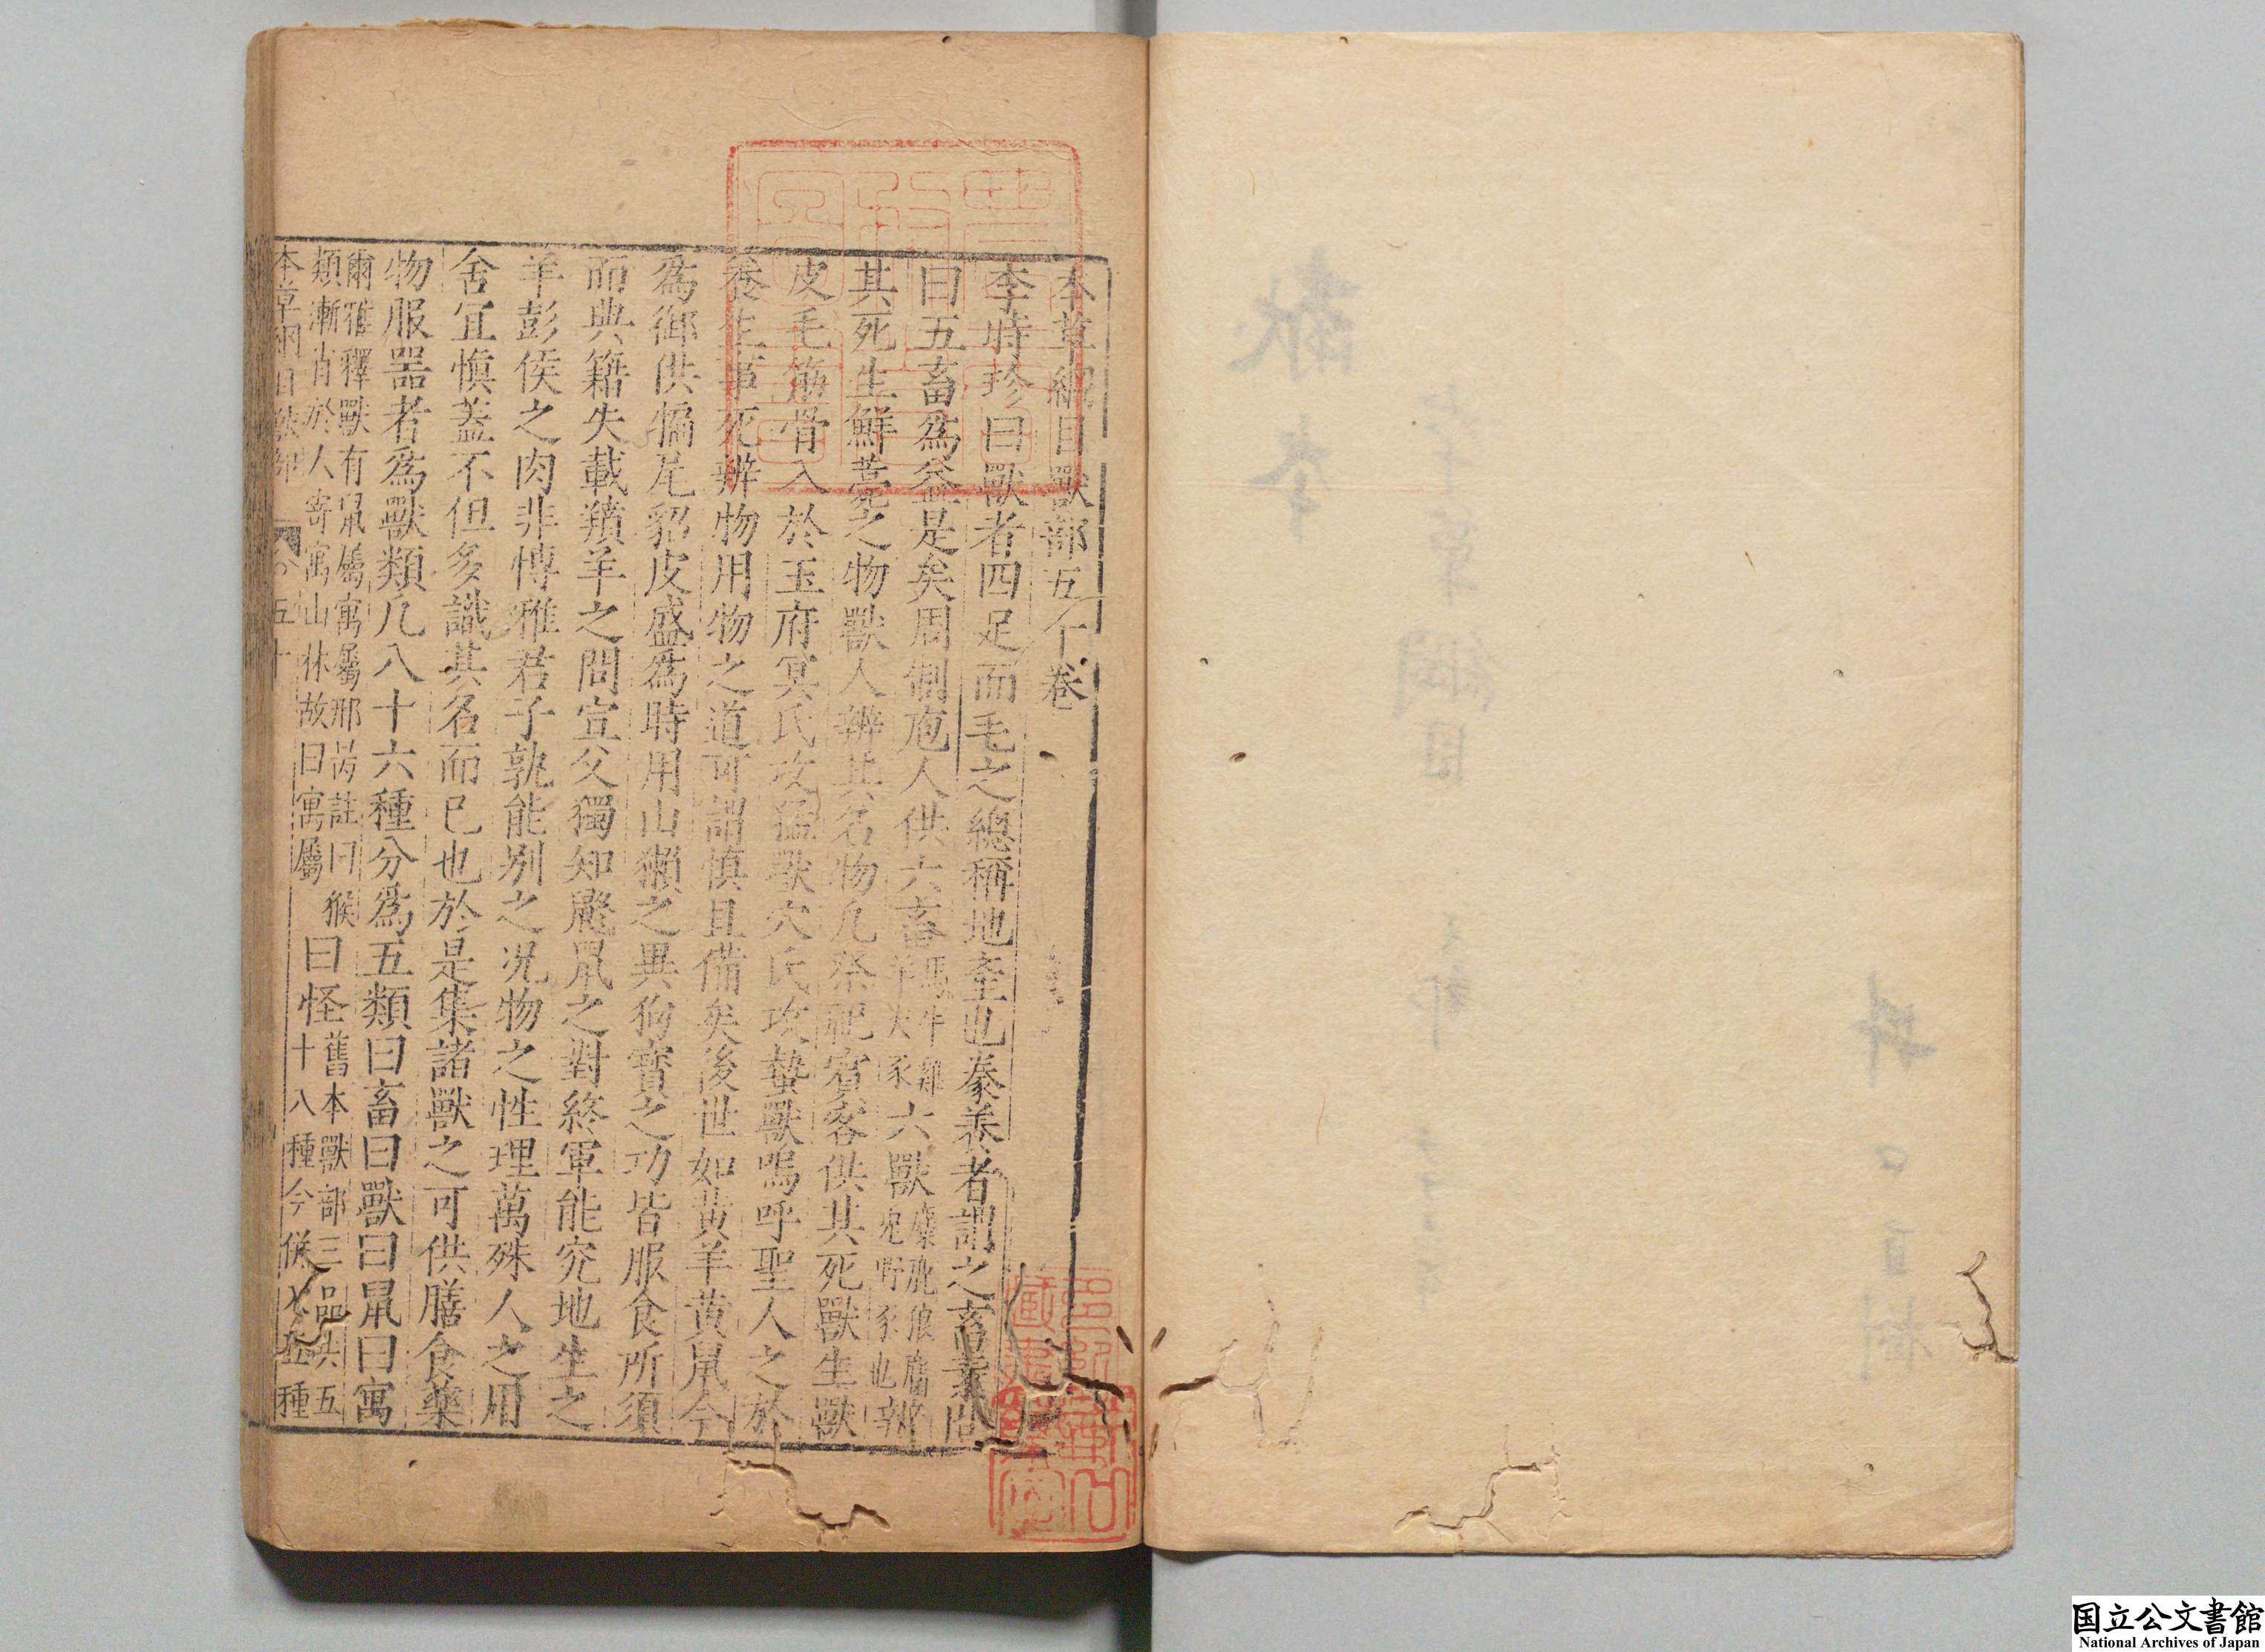 本草綱目獸部五十卷
李時珍曰獸者四足而毛之總稱地產也豢養者謂之畜素問
曰五畜為益是矣周制庖人供六畜馬牛雞羊犬豕六獸麋鹿狼麕兔野豕也辨
其死生鮮薧之物獸人辨其名物凡祭祀賓客供其死獸生獸
皮毛筋骨入於玉府冥氏攻猛獸穴氏攻蟄獸嗚呼聖人之於
養生事死辨物用物之道可謂慎且備矣後世如黃羊黃鼠今
為御供犏尾貂皮盛為時用山獺之異狗寶之功皆服食所須
而典籍失載羵羊之問宣父獨知鼮鼠之對終軍能究地生之
羊彭侯之肉非博雅君子孰能別之況物之性理萬殊人之用
舍宜慎蓋不但多識其名而已也於是集諸獸之可供膳食藥
物服器者為獸類凡八十六種分為五類曰畜曰獸曰鼠曰寓
爾雅釋獸有鼠屬寓屬邢昺註曰猴類漸肖於人寄寓山林故曰寓屬曰怪舊本獸部三品共五十八種今併入五種
本草綱目獸部 五十
国立公文書館
National Archives of Japan